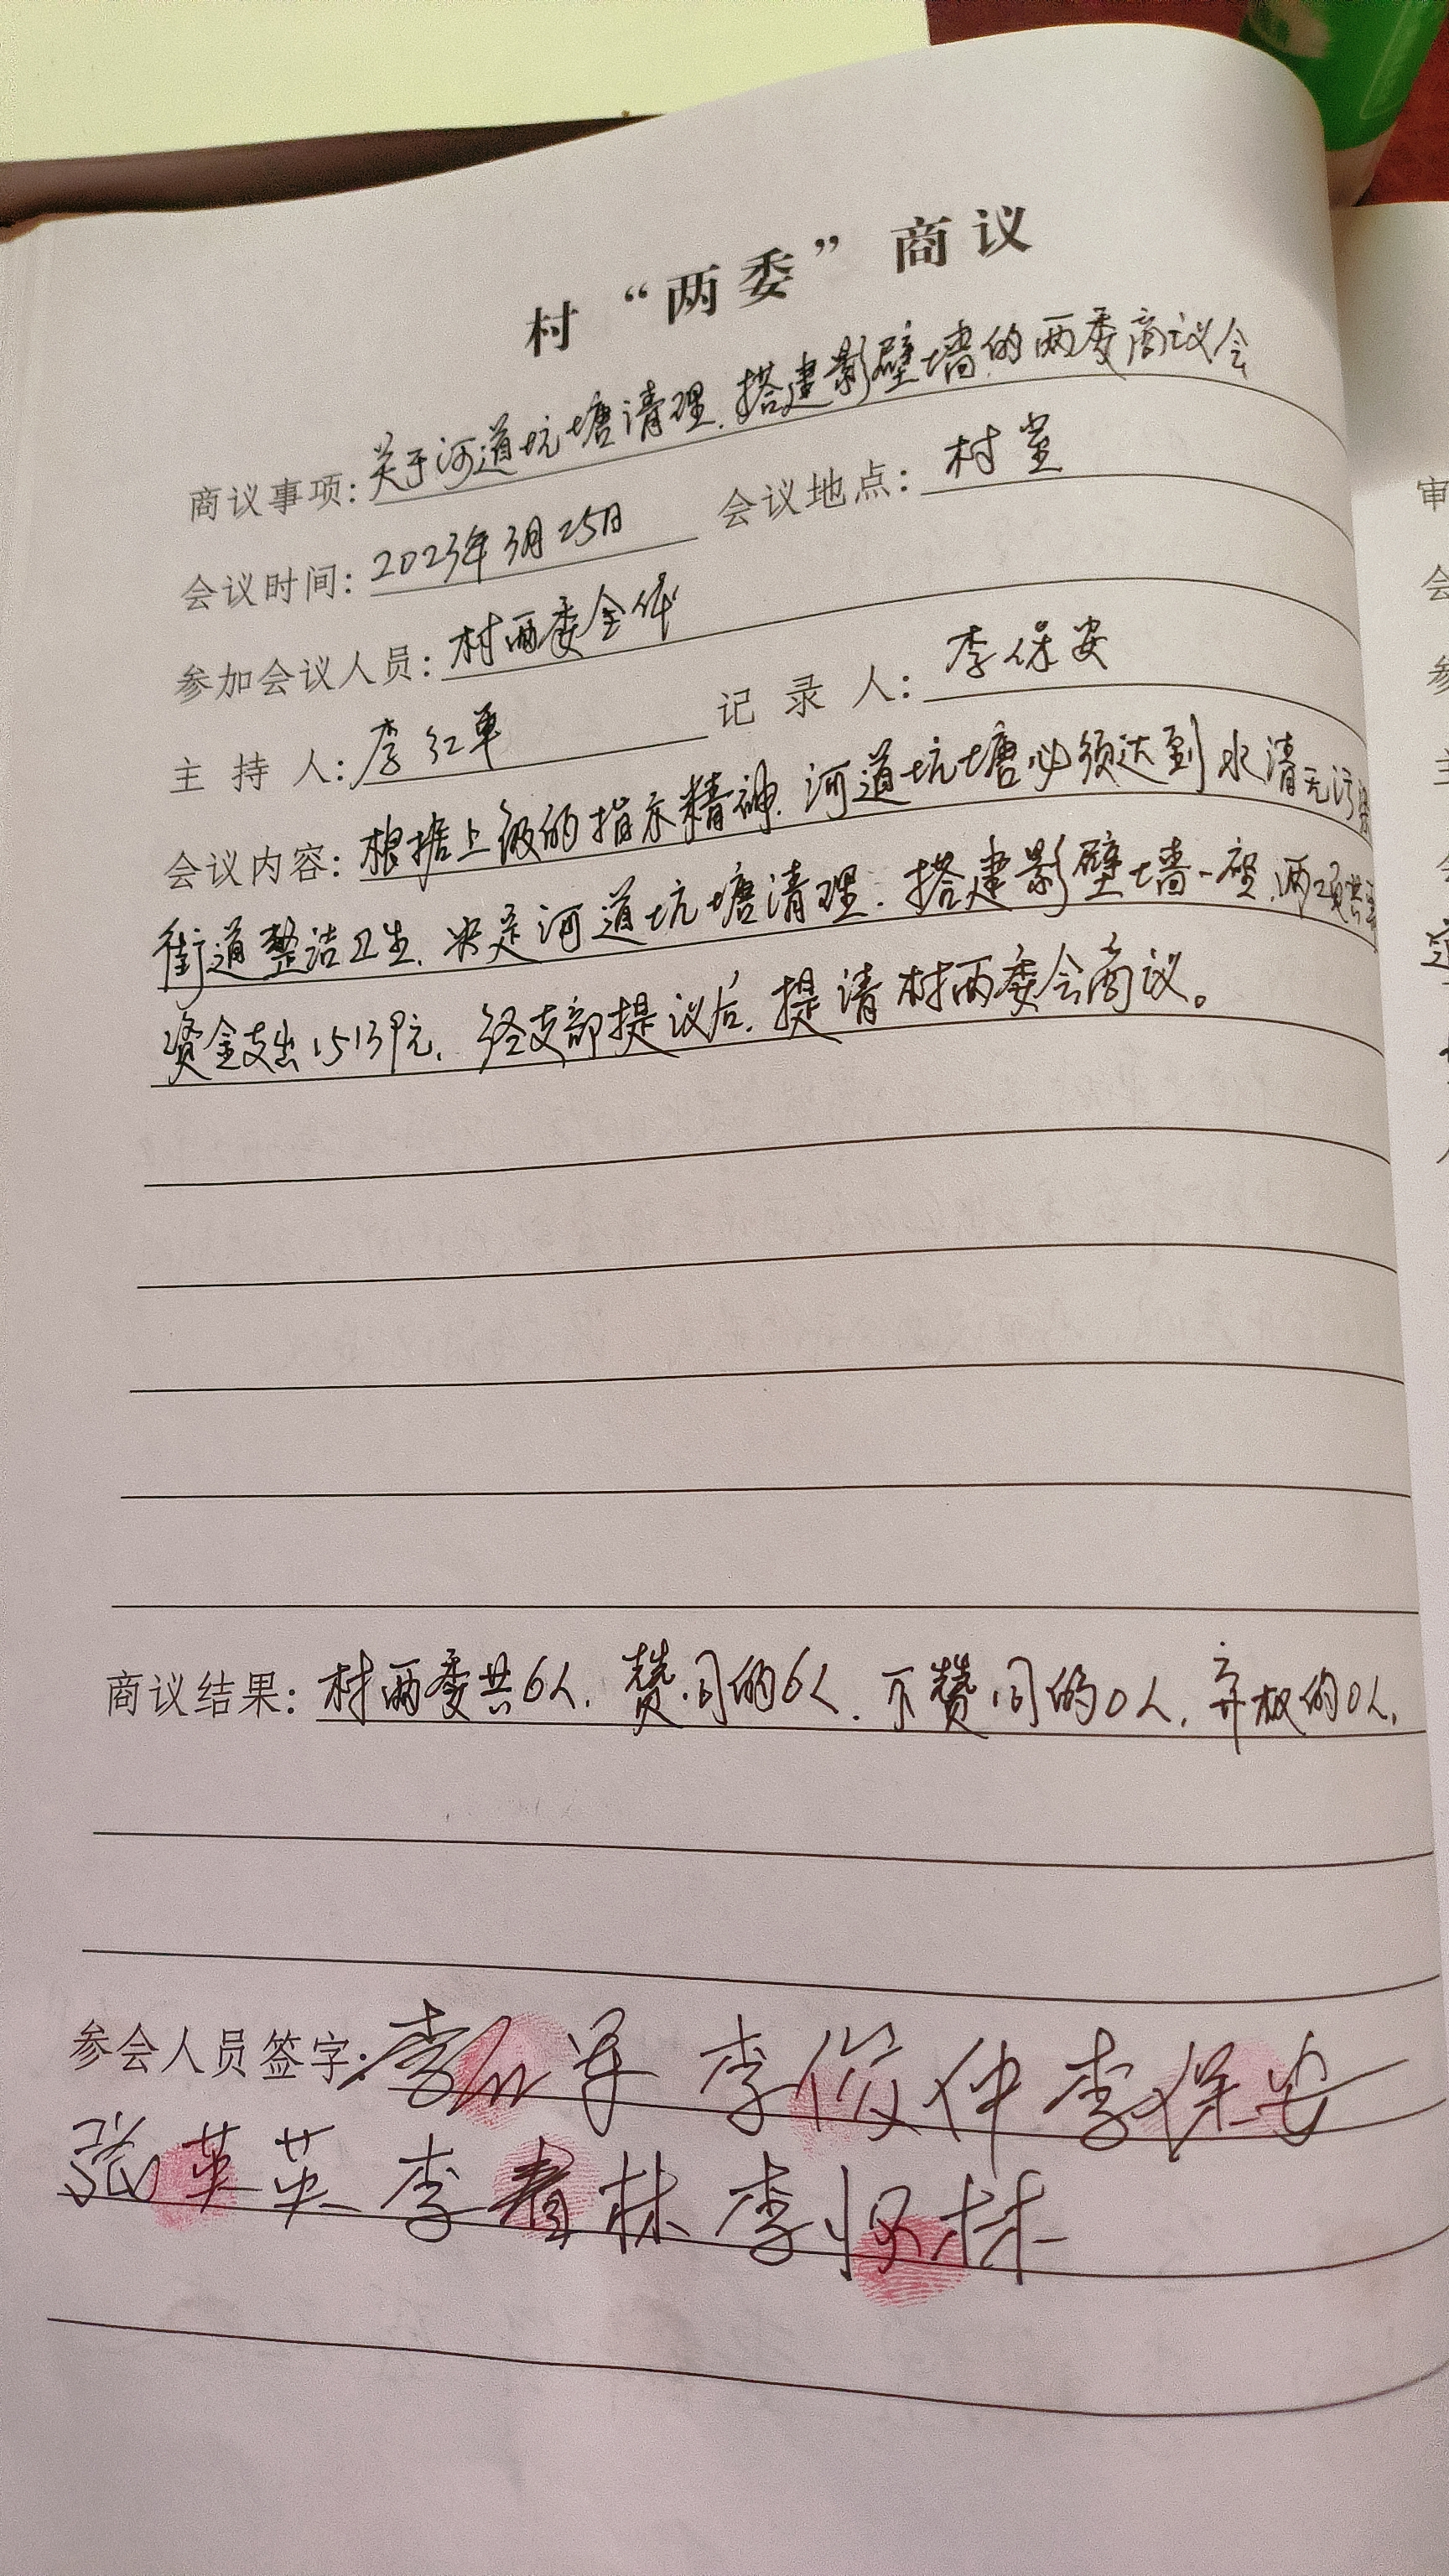 村“两委”商议
商议事项：关于河道坑塘清理、搭建影壁墙的两委商议会
会议时间：2023年3月25日 会议地点：村室
参加会议人员：村两委全体
主 持 人：李红军 记 录 人：李保安
会议内容：根据上级的指示精神，河道坑塘必须达到水清无污
街道整洁卫生，决定河道坑塘清理；搭建影壁墙一座，两项共
资金支出15139元，经支部提议后，提请村两委会商议。
商议结果：村两委共6人，赞同的6人，不赞同的0人，弃权的0人，
参会人员签字：李红军 李俊仲 李保安
张英英 李春林 李怀林
审
会
参
主
会